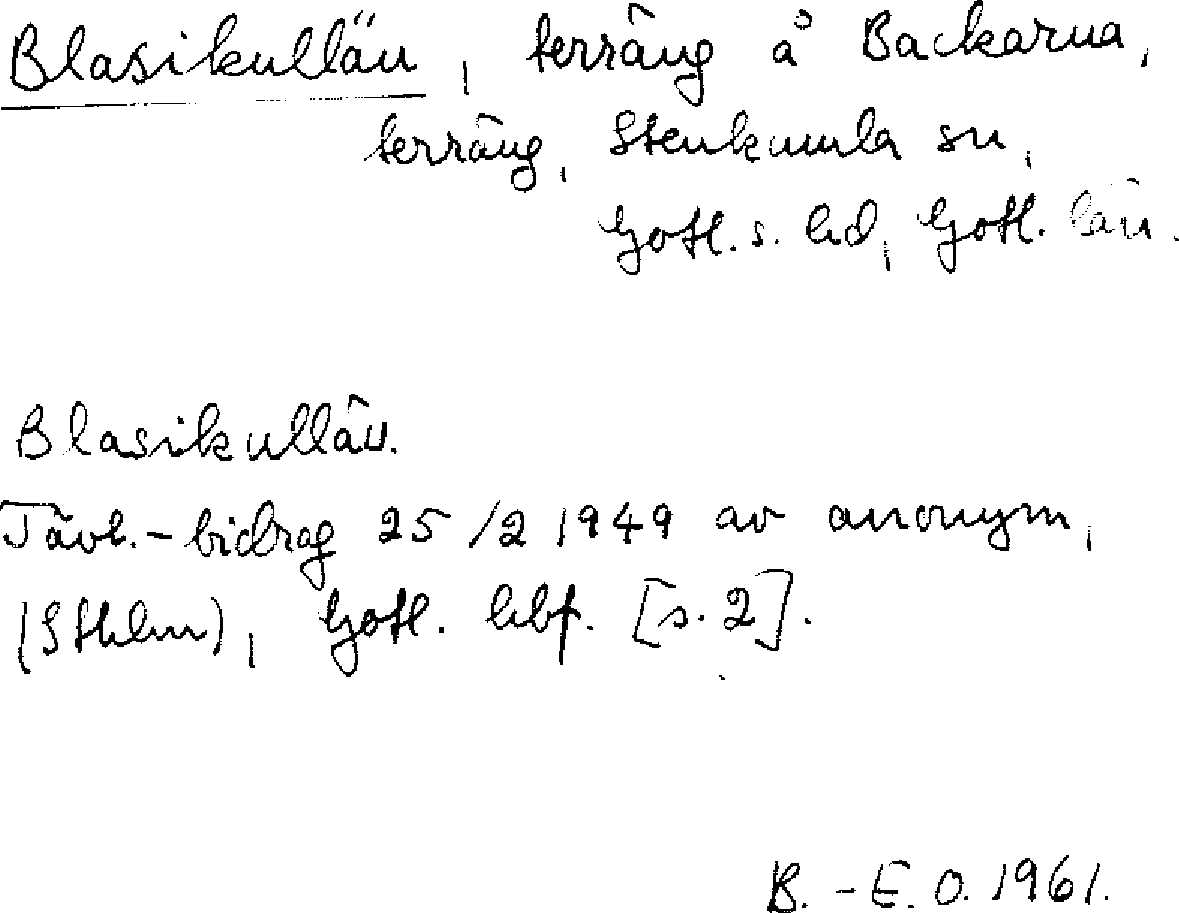 Blasikullän, terräng å Backarna,
terräng, Stenkumla sn,
Gotl. s. hd, Gotl. län.
Blasikullän.
Tävl.-bidrag 25/2 1949 av anonym,
(Sthlm), Gotl. hbf. [s. 2].
B.-E. O. 1961.